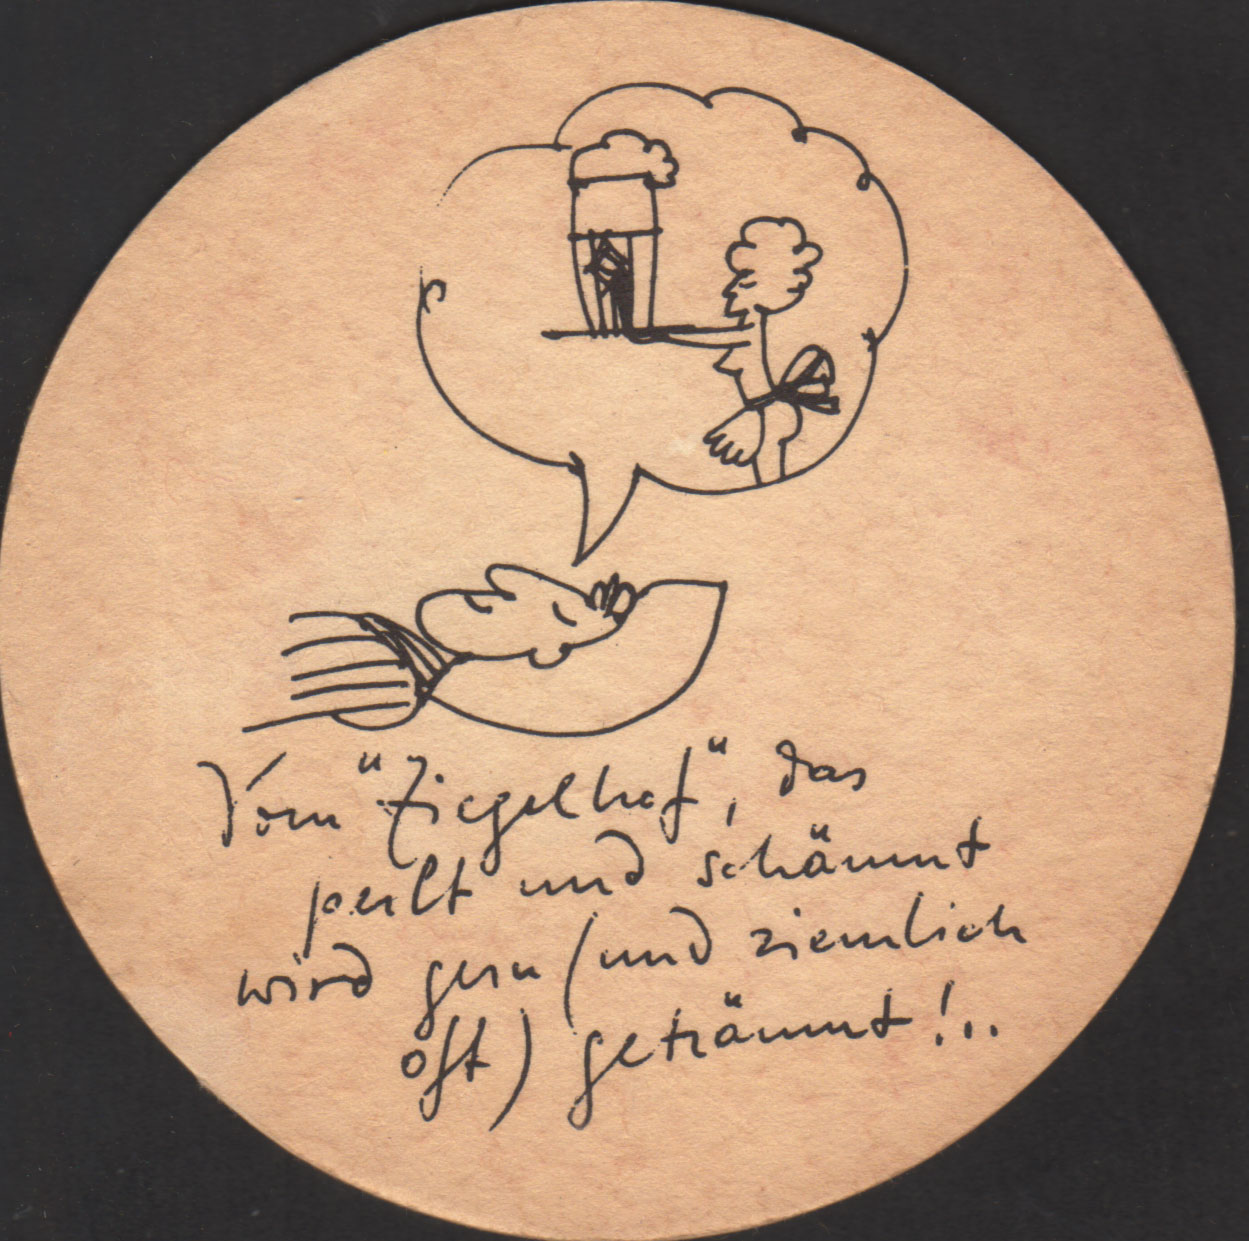 Vom "Ziegelhof", das
perlt und schäumt
wird gern (und ziemlich
oft) geträumt!..